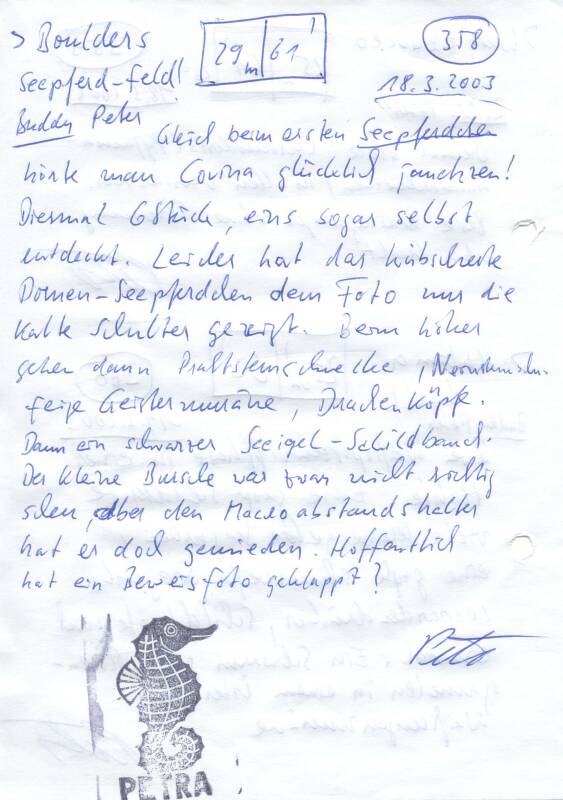 > Boulders
Seepferd-Feld!
29 m 61'
358
18.3.2003
Buddy Peter
Gleich beim ersten Seepferdchen
hörte man Corina glücklich jauchzen!
Diesmal 6 Stück, eins sogar selbst
entdeckt. Leider hat das hübscheste
Dornen-Seepferdchen dem Foto nur die
kalte Schulter gezeigt. Beim höher
gehen dann Prachtsternschnecke,
feige Geistermuräne, Drachenköpfe.
Dann ein schwarzer Seeigel-Schildbauch.
Der kleine Bursche war zwar nicht richtig
scheu, aber den Macroabstandshalter
hat er doch gemieden. Hoffentlich
hat ein Beweisfoto geklappt?
Peter
PETRA